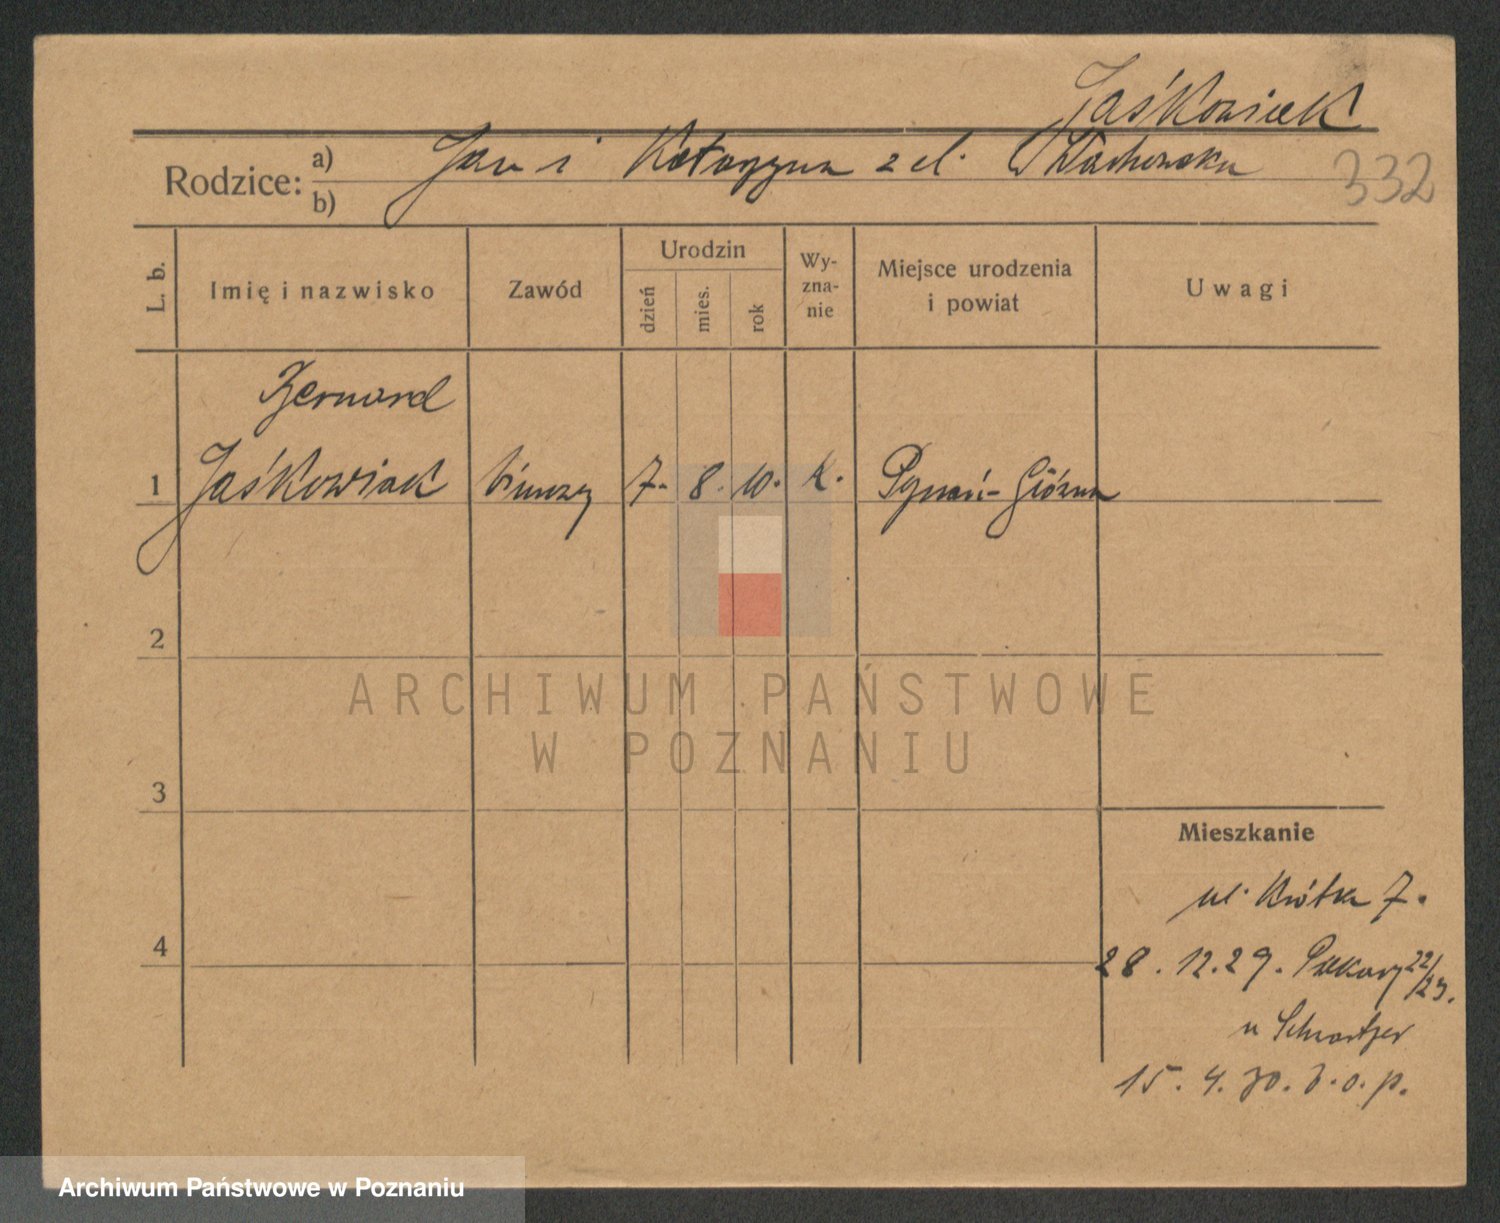 Jaśkowiak
Rodzice: a) b) Jan i Katarzyna z d.
332
L. b.
Imię i nazwisko
Zawód
Urodzin
dzień
mies.
rok
Wy-
zna-
nie
Miejsce urodzenia
i powiat
Uwagi
Bernard
1 Jaśkowiak biurowy 7. 8. 10. k. Poznań-Główna
2
ARCHIWUM PAŃSTWOWE
W POZNANIU
3
Mieszkanie
ul. Krótka 7.
4
28. 12. 29. Piekary 22/23.
u
15. 4. 30. b. o. p.
Archiwum Państwowe w Poznaniu